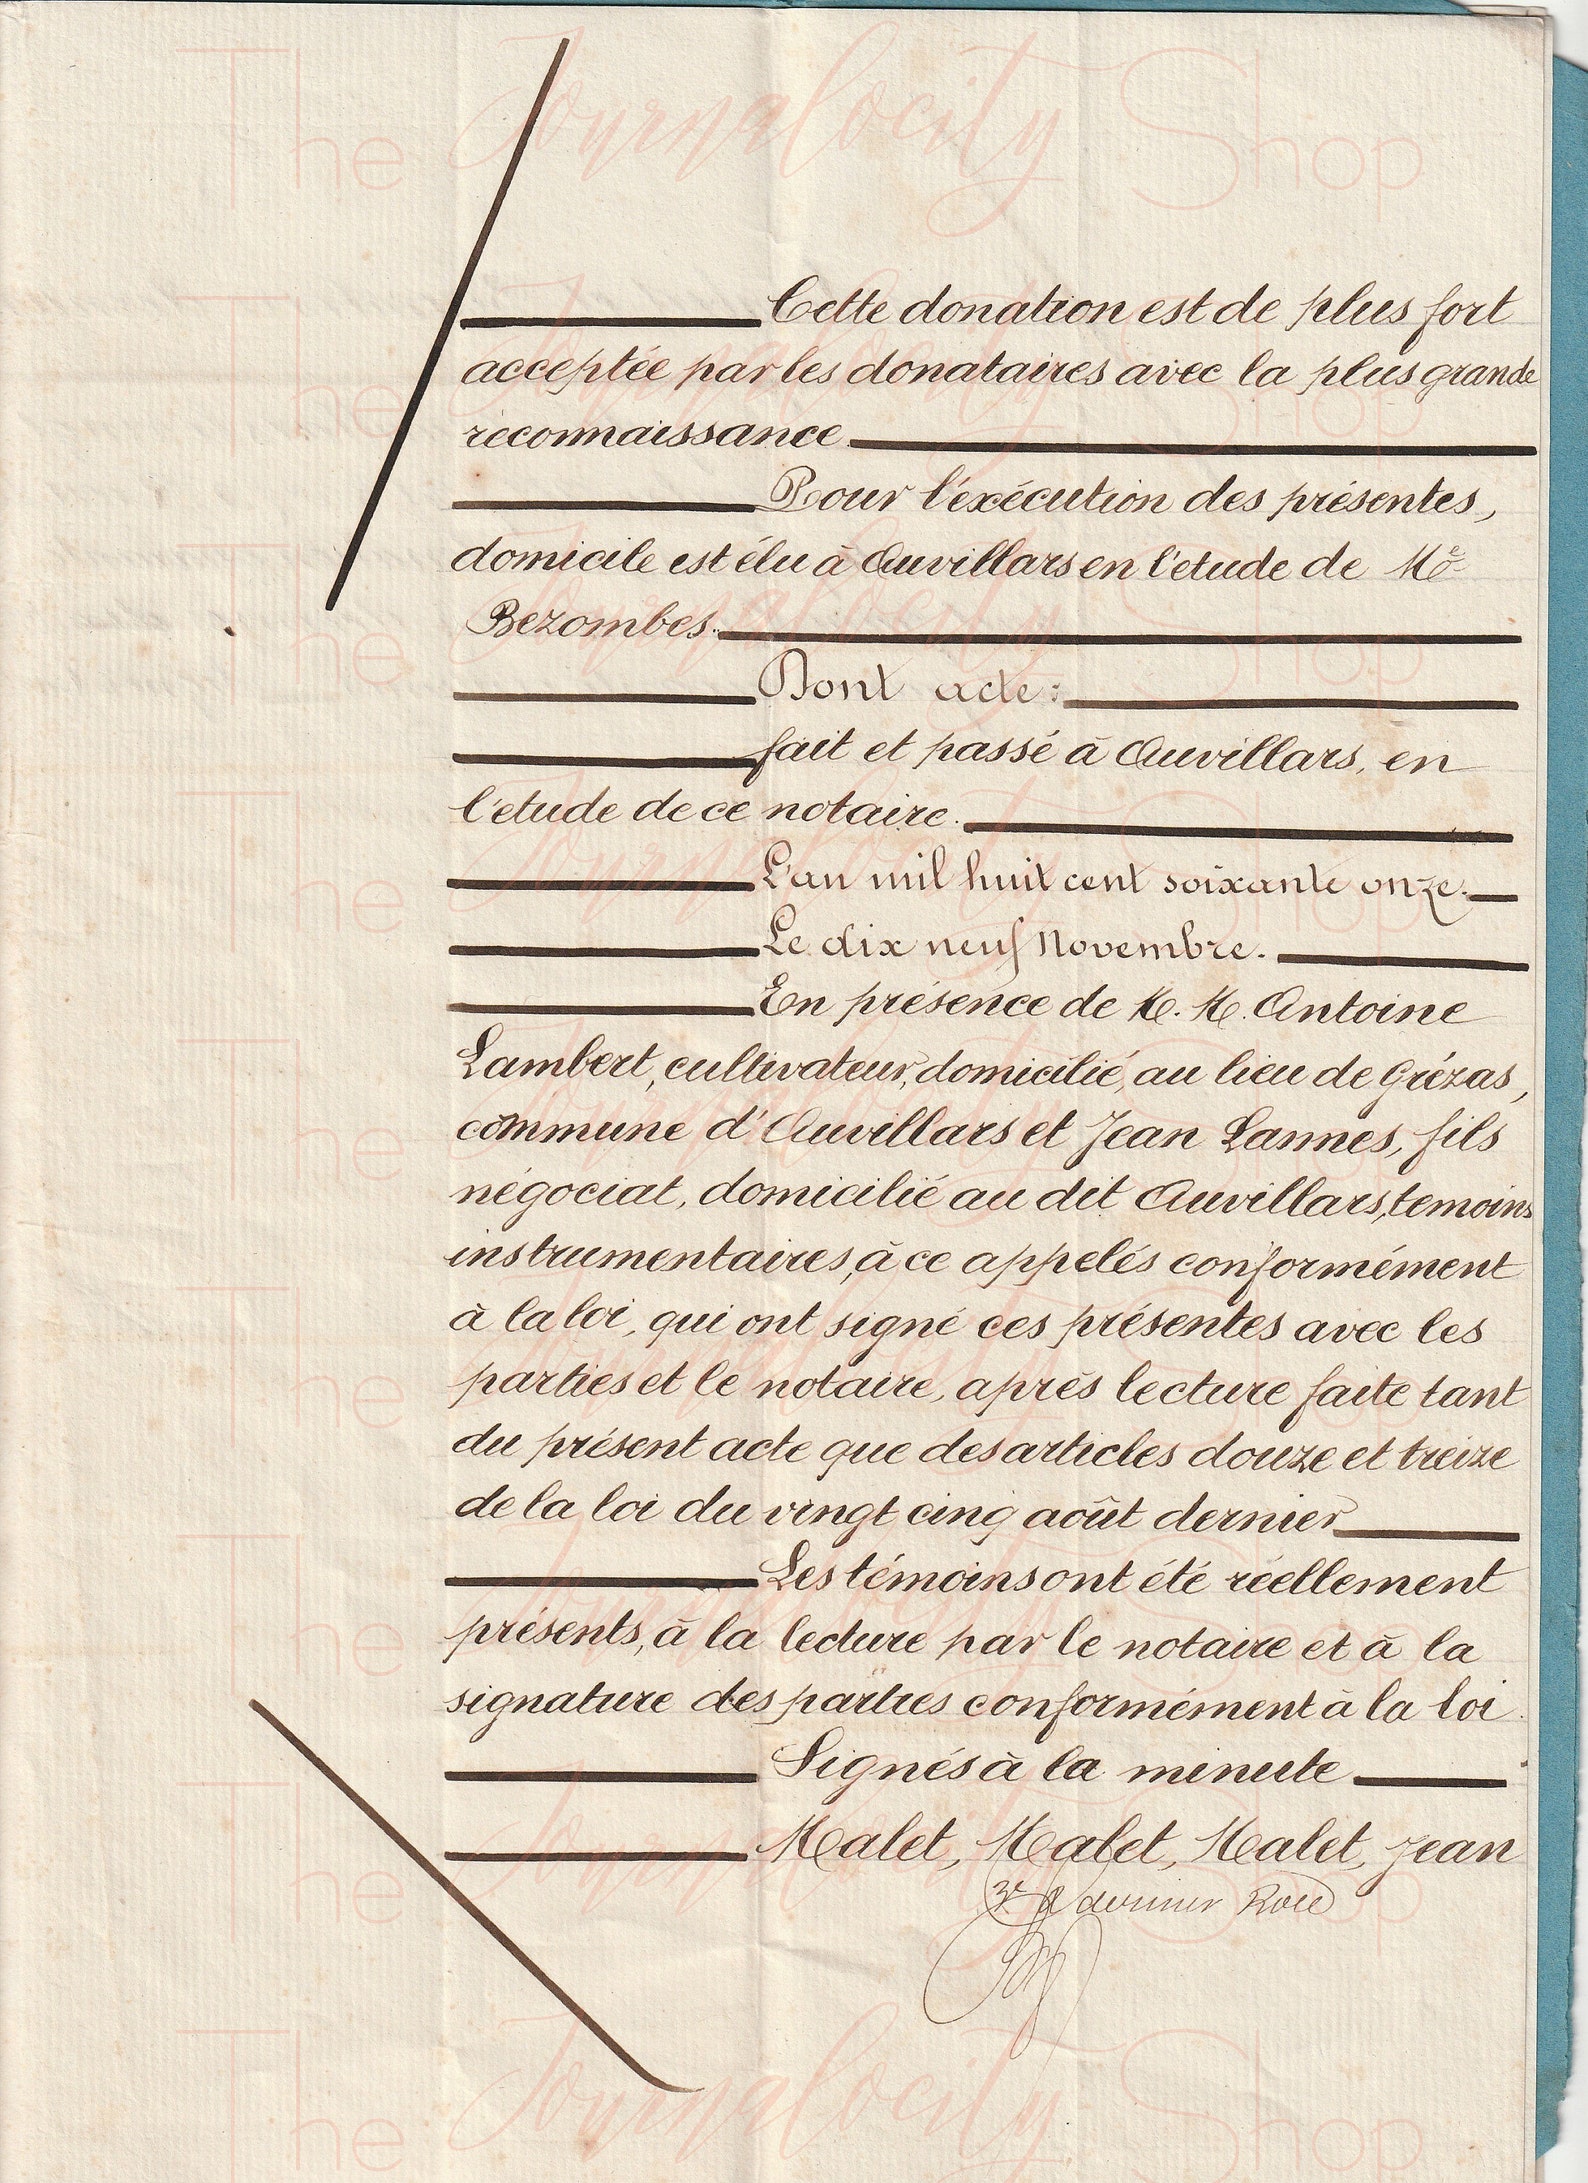 Cette donation est de plus fort
acceptée par les donataires avec la plus grande
réconnaissance
Pour l'éxécution des présentes,
domicile est élu à Auvillars en l'étude de Me
Bezombes.
Dont acte :
fait et passé à Auvillars, en
l'étude de ce notaire.
L'an mil huit cent soixante onze.
Le dix neuf Novembre.
En présence de M. M. Antoine
Lambert, cultivateur, domicilié, au lieu de Grézas,
commune d'Auvillars et Jean Lannes, fils
négociat, domicilié au dit Auvillars, temoins
instrumentaires, à ce appelés conformément
à la loi, qui ont signé ces présentes avec les
parties et le notaire, aprés lecture faite tant
du présent acte que des articles douze et treize
de la loi du vingt cinq août dernier
Les témoins ont été réellement
présents, à la lecture par le notaire et à la
signature des parties conformément à la loi.
Signés à la minute
Malet, Malet, Malet, Jean
3e & dernier Role
The Journalocity Shop